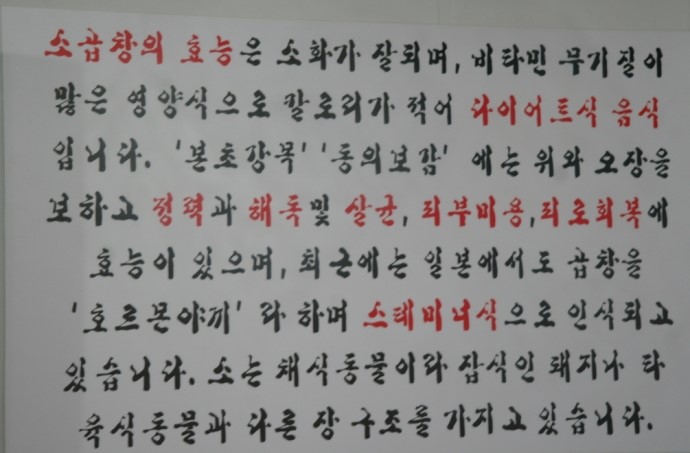 소곱창의 효능은 소화가 잘되며, 비타민 무기질이
많은 영양식으로 칼로리가 적어 다이어트식 음식
입니다. '본초강목' '동의보감' 에는 위와 오장을
보하고 정력과 해독및 살균, 피부미용, 피로회복에
효능이 있으며, 최근에는 일본에서도 곱창을
'호르몬야끼' 라 하며 스테미너식으로 인식되고
있습니다. 소는 채식동물이라 잡식인 돼지나 타
육식동물과 다른 장 구조를 가지고 있습니다.